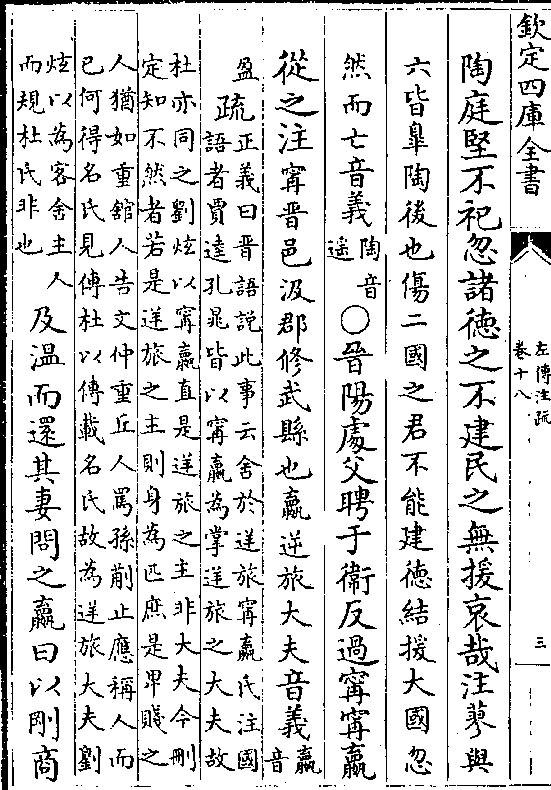 欽定四庫全書
左傳注疏
卷十八
三
陶庭堅不祀忽諸德之不建民之無援哀哉注蓼與
六皆臯陶後也傷二國之君不能建德結援大國忽
然而亡音義陶音遥○晉陽處父聘于衛反過甯甯嬴
從之注甯晉邑汲郡修武縣也嬴逆旅大夫音義嬴音
盈疏正義曰晉語說此事云舍於逆旅甯嬴氏注國
語者賈逵孔晁皆以甯嬴為掌逆旅之大夫故
杜亦同之劉炫以甯嬴直是逆旅之主非大夫今刪
定知不然者若是逆旅之主則身為匹庶是卑賤之
人猶如重舘人告文仲重丘人罵孫蒯止應稱人而
已何得名氏見傳杜以傳載名氏故為逆旅大夫劉
炫以為客舍主人
而規杜氏非也
及溫而還其妻問之嬴曰以剛商